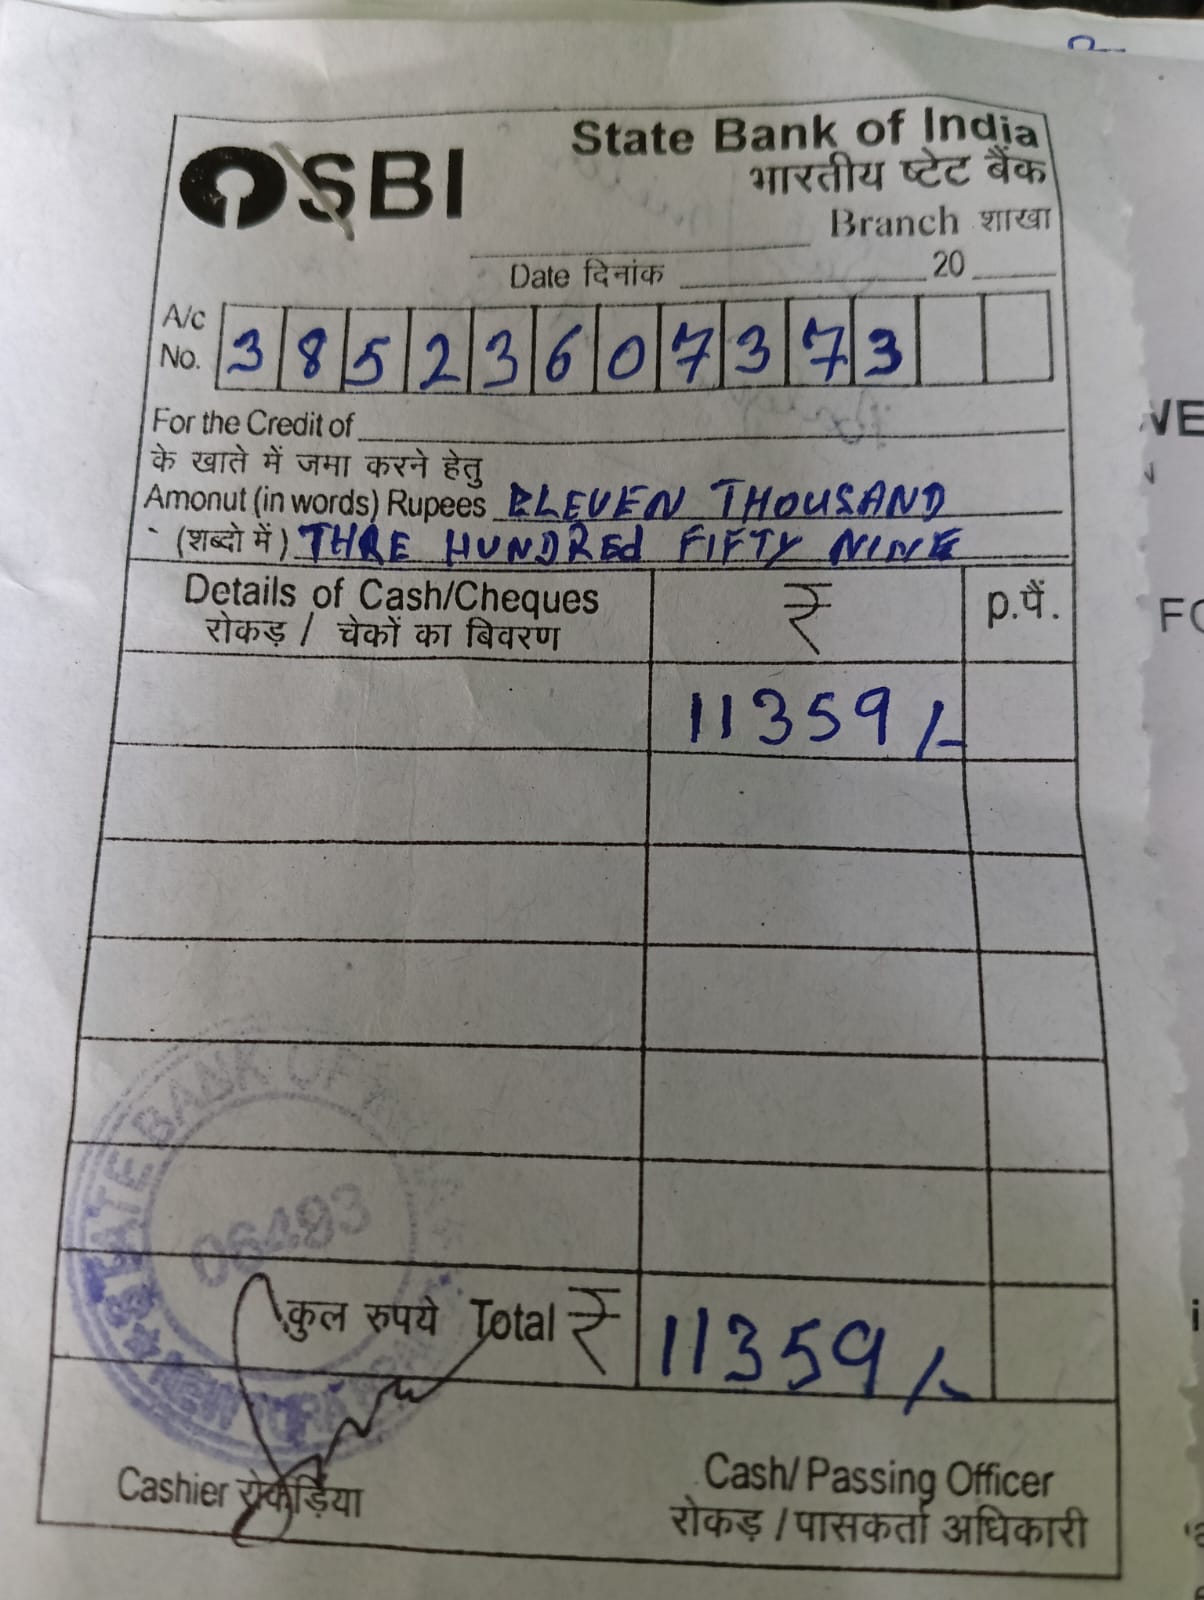 SBI
State Bank of India
भारतीय ष्टेट बैंक
Branch शाखा
Date दिनांक 20
A/c No. 38523607373
For the Credit of
के खाते में जमा करने हेतु
Amonut (in words) Rupees ELEVEN THOUSAND
(शब्दो में) THRE HUNDREd FIFTY NINE
Details of Cash/Cheques ₹ p.पैं.
रोकड़ / चेकों का बिवरण
11359/-
STATE BANK OF
06493
कुल रुपये Total ₹ 11359/-
Cashier रोकड़िया
Cash/Passing Officer
रोकड़ /पासकर्ता अधिकारी